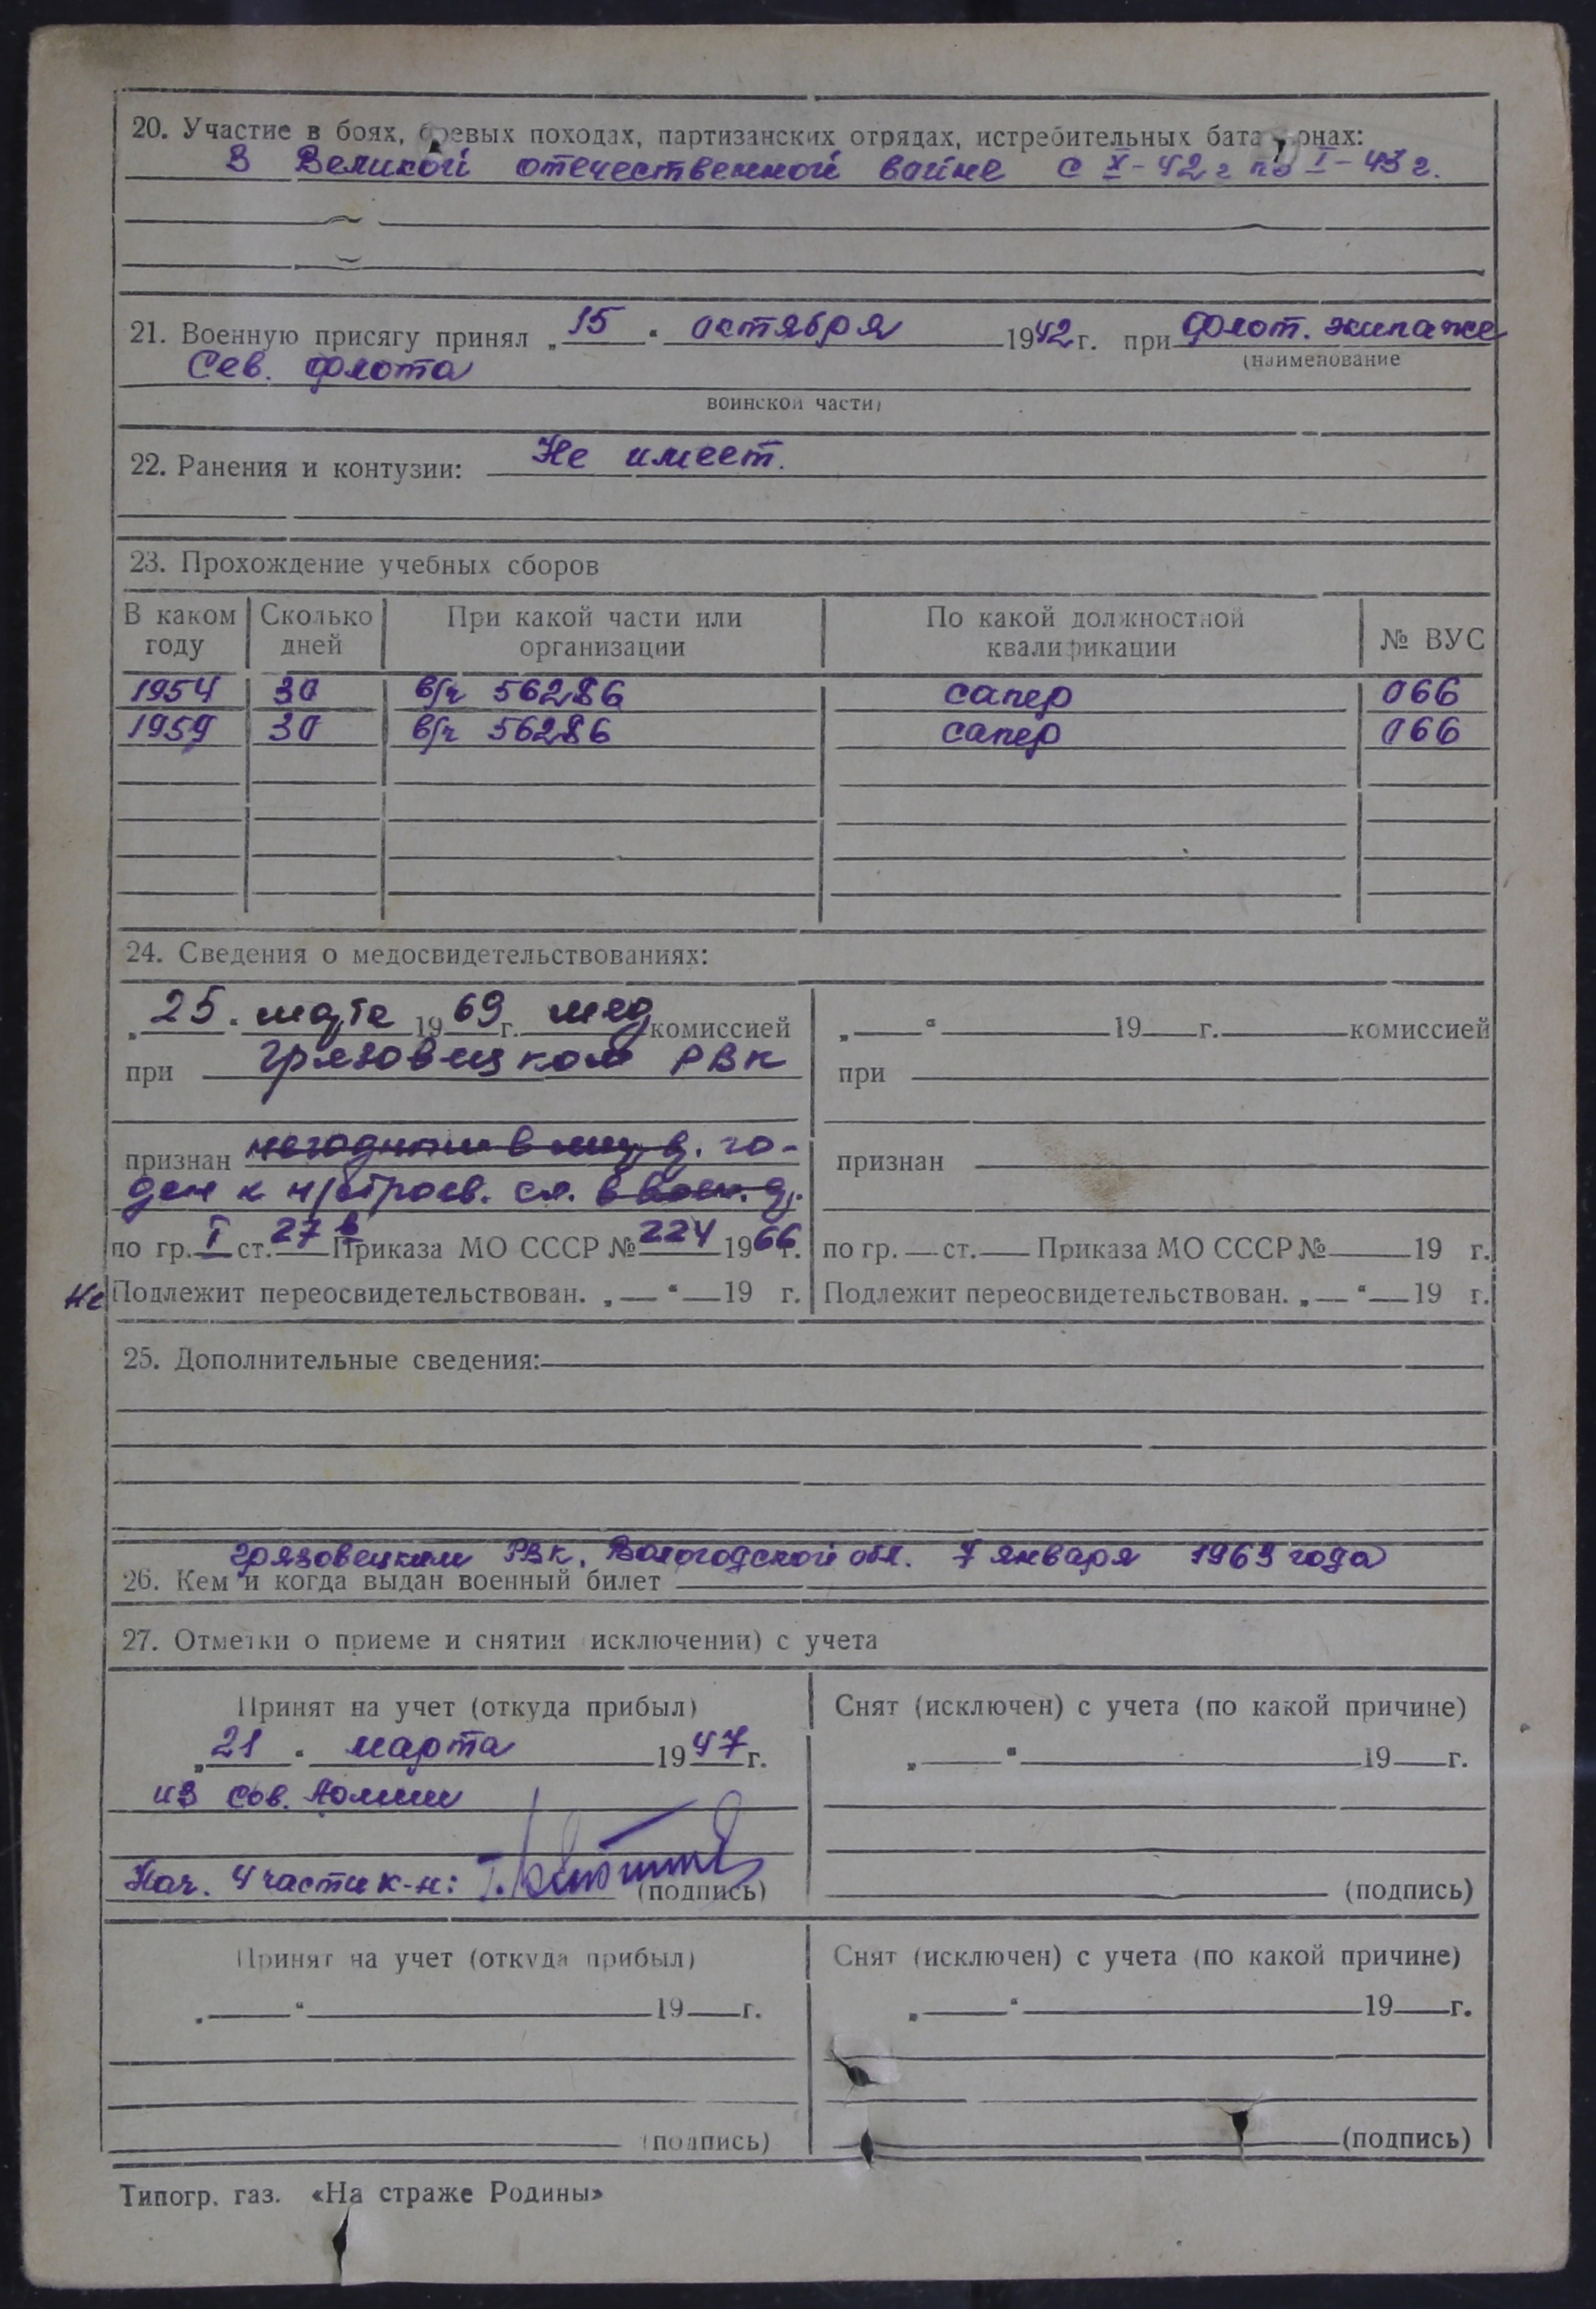 20. Участие в боях, боевых походах, партизанских отрядах, истребительных бата онах:
В Великой отечественной войне с X-42 г по I-43 г.
21. Военную присягу принял „15“ октября 1942 г. при флот. экипаже
(наименование
Сев. флота
воинской части)
22. Ранения и контузии: Не имеет.
23. Прохождение учебных сборов
В каком году Сколько дней При какой части или организации По какой должностной квалификации № ВУС
1954 30 в/ч 56286 сапер 066
1959 30 в/ч 56286 сапер 066
24. Сведения о медосвидетельствованиях:
„25“ марта 1969 г. мед комиссией
при Грязовецком РВК
признан негодным в го-
ден к н/строев. сл. в
по гр. I ст. 27 в Приказа МО СССР № 224 1966 г.
Не Подлежит переосвидетельствован. „ “ 19 г.
„ “ 19 г. комиссией
при
признан
по гр. ст. Приказа МО СССР № 19 г.
Подлежит переосвидетельствован. „ “ 19 г.
25. Дополнительные сведения:
Грязовецким РВК, Вологодской обл. 7 января 1963 года
26. Кем и когда выдан военный билет
27. Отметки о приеме и снятии исключении) с учета
Принят на учет (откуда прибыл)
„21“ марта 1947 г.
из Сов. Армии
Нач. 4 части к-н:
(подпись)
Снят (исключен) с учета (по какой причине)
„ “ 19 г.
(подпись)
Принят на учет (откуда прибыл)
„ “ 19 г.
(подпись)
Снят (исключен) с учета (по какой причине)
„ “ 19 г.
(подпись)
Типогр. газ. «На страже Родины»